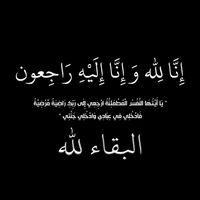 إِنَّا لِلّٰهِ وَ إِنَّا إِلَيْهِ رَاجِعون
" يَا أَيَّتُهَا النَّفْسُ الْمُطْمَئِنَّةُ ارْجِعِي إِلَى رَبِّكِ رَاضِيَةً مَّرْضِيَّةً
فَادْخُلِي فِي عِبَادِي وَادْخُلِي جَنَّتِي "
البقاء لله